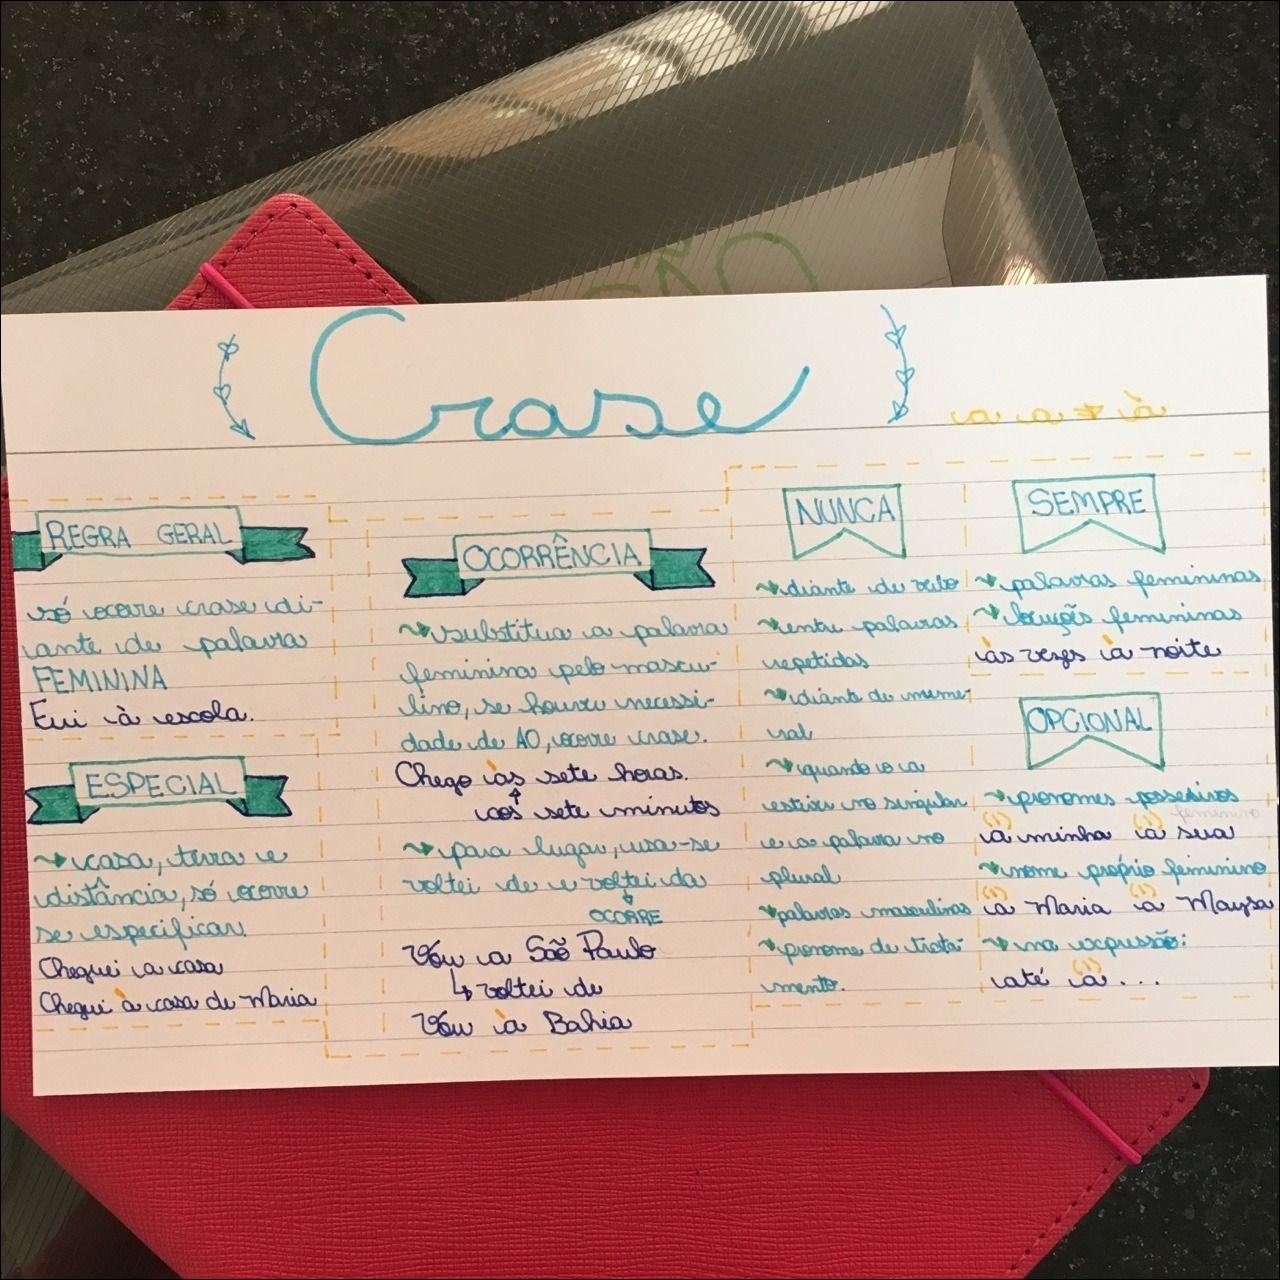 ÃO
Crase
a a → à
REGRA GERAL
só ocorre crase di-
ante de palavra
FEMININA
Fui à escola.
ESPECIAL
casa, terra e
distância, só ocorre
se especificar.
Cheguei a casa
Chegui à casa de Maria
OCORRÊNCIA
substitua a palavra
feminina pelo mascu-
lino, se houver necessi-
dade de AO, ocorre crase.
Chego às sete horas.
aos sete minutos
para lugar, usa-se
voltei de e voltei da
OCORRE
Vou a São Paulo
voltei de
Vou à Bahia
NUNCA
diante de verbo
entre palavras
repetidas
diante de nume-
ral
quando o a
estiver no singular
e a palavra no
plural
palavras masculinas
pronome de trata-
mento.
SEMPRE
palavras femininas
locuções femininas
às vezes à noite
OPCIONAL
pronomes possesivos
feminino
à minha à sua
nome próprio feminino
à Maria à Maysa
na expressão:
até à...